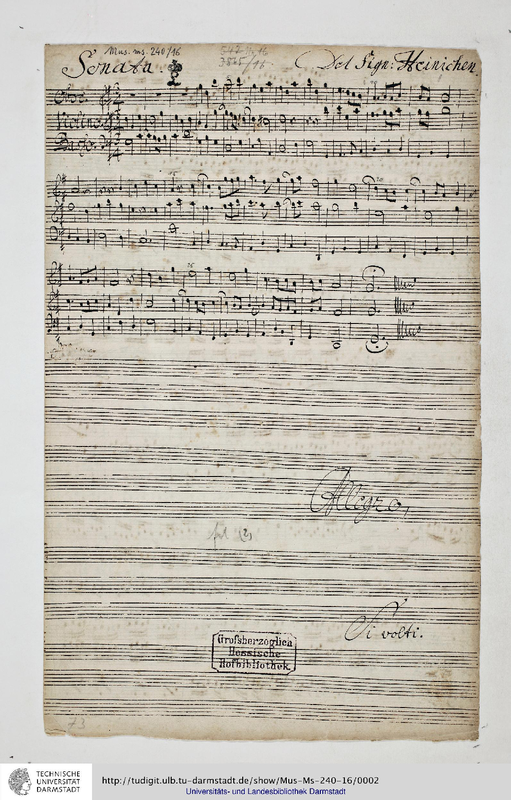 Mus. ms. 240/16
Sonata.
Del Sign: Heinichen.
Allegro,
Si volti.
Großherzoglich
Hessische
Hofbibliothek.
TECHNISCHE
UNIVERSITÄT
DARMSTADT
http://tudigit.ulb.tu-darmstadt.de/show/Mus-Ms-240-16/0002
Universitäts- und Landesbibliothek Darmstadt